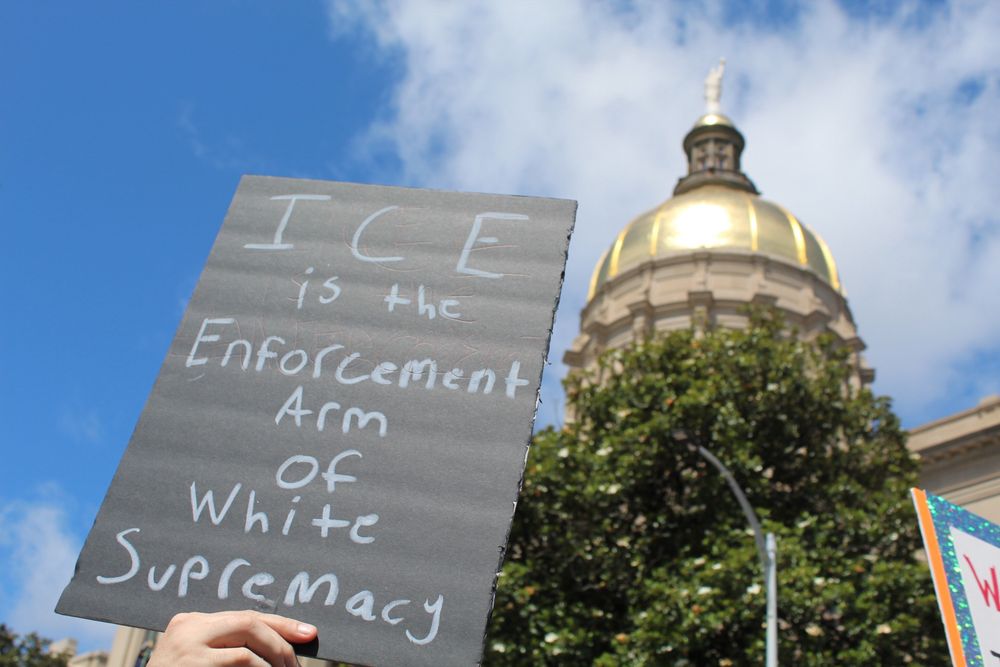 ICE
is the
Enforcement
Arm
of
White
Supremacy
W